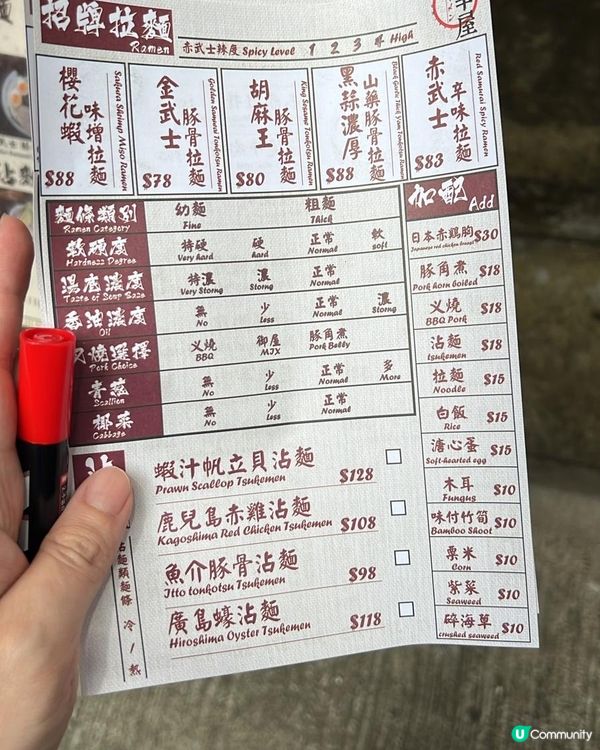 招牌拉麵
Ramen
赤武士辣度 Spicy Level 1 2 3 4 High
櫻花蝦
味增拉麵
Sakura Shrimp Miso Ramen
$88
金武士
豚骨拉麵
Golden Samurai Tonkotsu Ramen
$78
胡麻王
豚骨拉麵
King Sesame Tonkotsu Ramen
$80
黑蒜濃厚
山藥豚骨拉麵
Black Garlic Thick Yam Tonkotsu Ramen
$88
赤武士
辛味拉麵
Red Samurai Spicy Ramen
$83
麵條類別
Ramen Category
幼麵 粗麵
Fine Thick
軟硬度
Hardness Degree
特硬 硬 正常 軟
Very hard hard Normal soft
湯底濃度
Taste of Soup Base
特濃 濃 正常
Very Storng Storng Normal
香油濃度
Oil
無 少 正常 濃
No Less Normal Storng
叉燒選擇
Pork Choice
义燒 御屋 豚角煮
BBQ MJX Pork Belly
青蔥
Scallion
無 少 正常 多
No Less Normal More
椰菜
Cabbage
無 少 正常
No Less Normal
加配 Add
日本赤鶏胸 $30
Japanese red chicken breast
豚角煮 $18
Pork horn boiled
义燒 $18
BBQ Pork
沾麵 $18
tsukemen
拉麵 $15
Noodle
白飯 $15
Rice
溏心蛋 $15
Soft-hearted egg
木耳 $10
Fungus
味付竹筍 $10
Bamboo Shoot
粟米 $10
Corn
紫菜 $10
Seaweed
碎海草 $10
crushed seaweed
沾麵類麵條 冷/熱
蝦汁帆立貝沾麵 $128
Prawn Scallop Tsukemen
鹿兒島赤雞沾麵 $108
Kagoshima Red Chicken Tsukemen
魚介豚骨沾麵 $98
Itto tonkotsu Tsukemen
廣島蠔沾麵 $118
Hiroshima Oyster Tsukemen
U Community